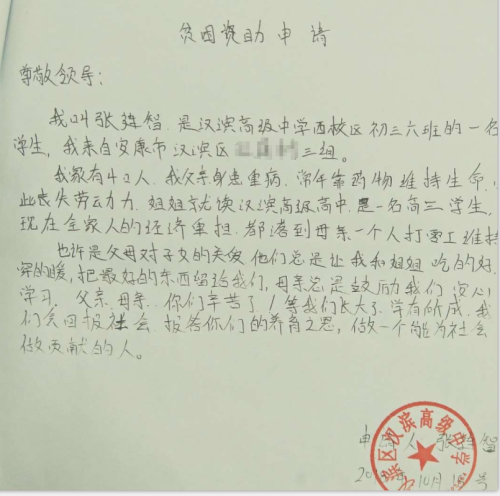 贫困资助申请
尊敬领导:
我叫张 智.是汉滨高级中学西校区初三六班的一名
学生,我来自安康市汉滨区 三组。
我家有四口人,我父亲身患重病.常年靠药物维持生命,
此丧失劳动力力.姐姐就读汉滨高级高中.是一名高三学生,
现在全家人的经济重担.都落到母亲一个人打零工维持
也许是父母对子女的关爱他们总是让我和姐姐吃的好.
穿的暖,把最好的东西留给我们,母亲总是鼓励我们安心
学习.父亲.母亲..你们辛苦了!等我们长大了.学有所成.我
们会回报社会.报答你们的养育之恩,做一个能为社会
做贡献的人。
申 人 张 智
20 年10月 号
滨区汉滨高级中学